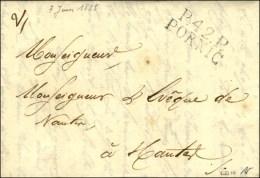 7 Juin 1828
P.42.P.
PORNIC
Monseigneur
Monseigneur L'Evêque de
Nantes
à Nantes